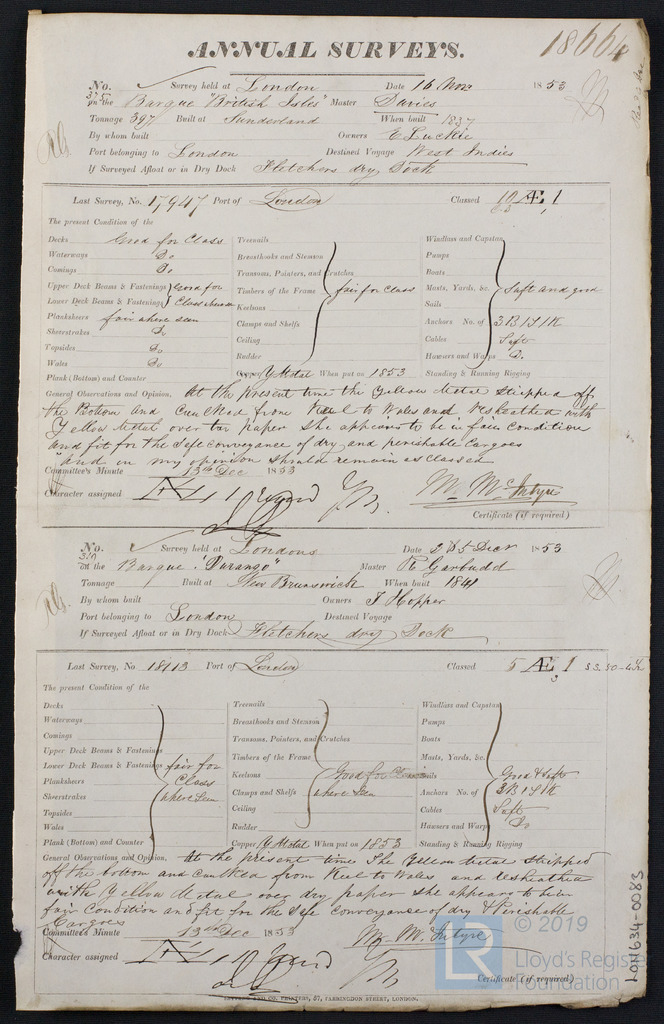 ANNUAL SURVEYS.
18664
No. 375 Survey held at London Date 16 Nov 1853
on the Barque "British Isles" Master Davies
Tonnage 397 Built at Sunderland When built 1837
By whom built Owners E Luckie
Port belonging to London Destined Voyage West Indies
If Surveyed Afloat or in Dry Dock Fletchers dry Dock
Last Survey, No. 17,947 Port of London Classed Æ 1
The present Condition of the
Decks Good for Class
Waterways Do
Comings Do
Upper Deck Beams & Fastenings } Good for
Lower Deck Beams & Fastenings } Class where seen
Planksheers fair where seen
Sheerstrakes Do
Topsides Do
Wales Do
Plank (Bottom) and Counter
Treenails
Breasthooks and Stemson
Transoms, Pointers, and Crutches
Timbers of the Frame fair for Class
Keelsons
Clamps and Shelfs
Ceiling
Rudder
Copper Y Metal When put on 1853
Windlass and Capstan
Pumps
Boats
Masts, Yards, &c. Safe and good
Sails
Anchors No. of 3 B 1 S 1 K
Cables Safe
Hawsers and Warps Do
Standing & Running Rigging
General Observations and Opinion, At the present time the Yellow Metal stripped off
the Bottom and Caulked from Keel to Wales and resheathed with
Yellow Metal over tar paper She appears to be in fair condition
and fit for the safe conveyance of dry and perishable Cargoes
and in my opinion should remain as classed
Committee's Minute 13th Dec 1853
Character assigned
Mr McIntyre
Certificate (if required)
No. Survey held at London Date 2 & 5 Decr 1853
on the Barque "Durango" Master R Garbudd
Tonnage Built at New Brunswick When built 1841
By whom built Owners J Hopper
Port belonging to London Destined Voyage
If Surveyed Afloat or in Dry Dock Fletchers dry Dock
Last Survey, No 18113 Port of London Classed 5 Æ 1
The present Condition of the
Decks
Waterways
Comings
Upper Deck Beams & Fastenings
Lower Deck Beams & Fastenings fair for
Planksheers Class
Sheerstrakes where seen
Topsides
Wales
Plank (Bottom) and Counter
Treenails
Breasthooks and Stemson
Transoms, Pointers, and Crutches
Timbers of the Frame
Keelsons Good for Class
Clamps and Shelfs where seen
Ceiling
Rudder
Copper Y Metal When put on 1853
Windlass and Capstan
Pumps
Boats
Masts, Yards, &c.
Sails Good & Safe
Anchors No. of 3 B 1 S 1 K
Cables Safe
Hawsers and Warps Do
Standing & Running Rigging
General Observations and Opinion, At the present time The Yellow Metal stripped
off the bottom and caulked from Keel to Wales and resheathed
with Yellow Metal over dry paper she appears to be in
fair Condition and fit for the Safe Conveyance of dry & Perishable
Cargoes
Committee's Minute 13th Dec 1853
Mr McIntyre
Character assigned
Certificate (if required)
PRINTERS, 57, FARRINGDON STREET, LONDON.
LON634-0083
LR © 2019
Lloyd's Register
Foundation